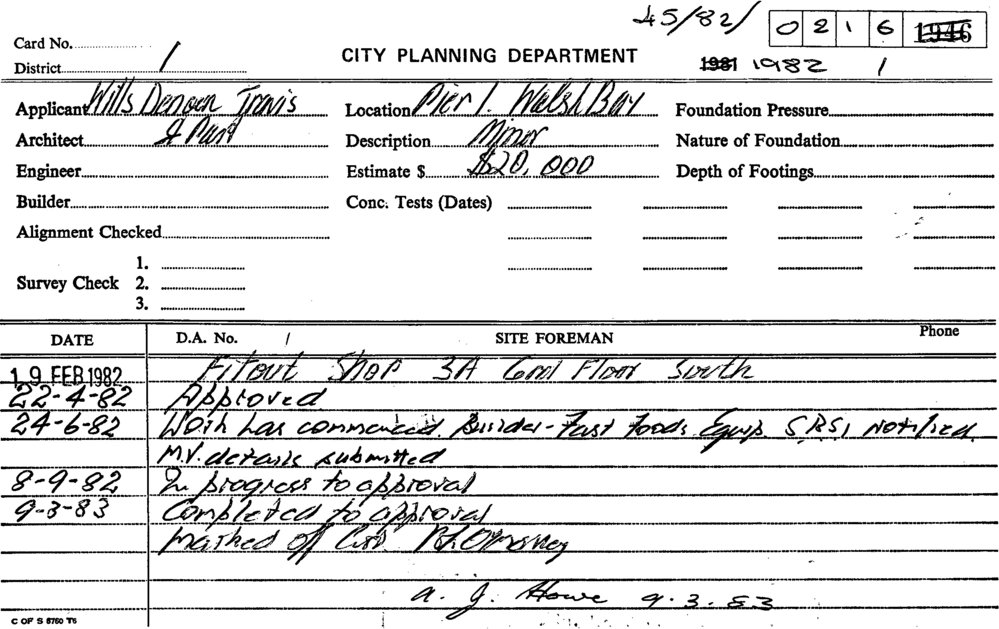 45/82/ 0 2 1 6 1946
Card No.
District / CITY PLANNING DEPARTMENT 1981 1982 /
Applicant Wills Denoon Travis Location Pier 1. Walsh Bay Foundation Pressure
Architect Description Minor Nature of Foundation
Engineer Estimate $ $20,000 Depth of Footings
Builder Conc. Tests (Dates)
Alignment Checked
1.
Survey Check 2.
3.
DATE D.A. No. / SITE FOREMAN Phone
19 FEB 1982 Fitout Shop 3A Grnd Floor South
22-4-82 Approved
24-6-82 Work has commenced. Builder - Fast Foods Equip. S.R.S, Notified
M.V. details submitted
8-9-82 In progress to approval
9-3-83 Completed to approval
Marked off
a. J. Howe 9.3.83
C OF S 8760 T6